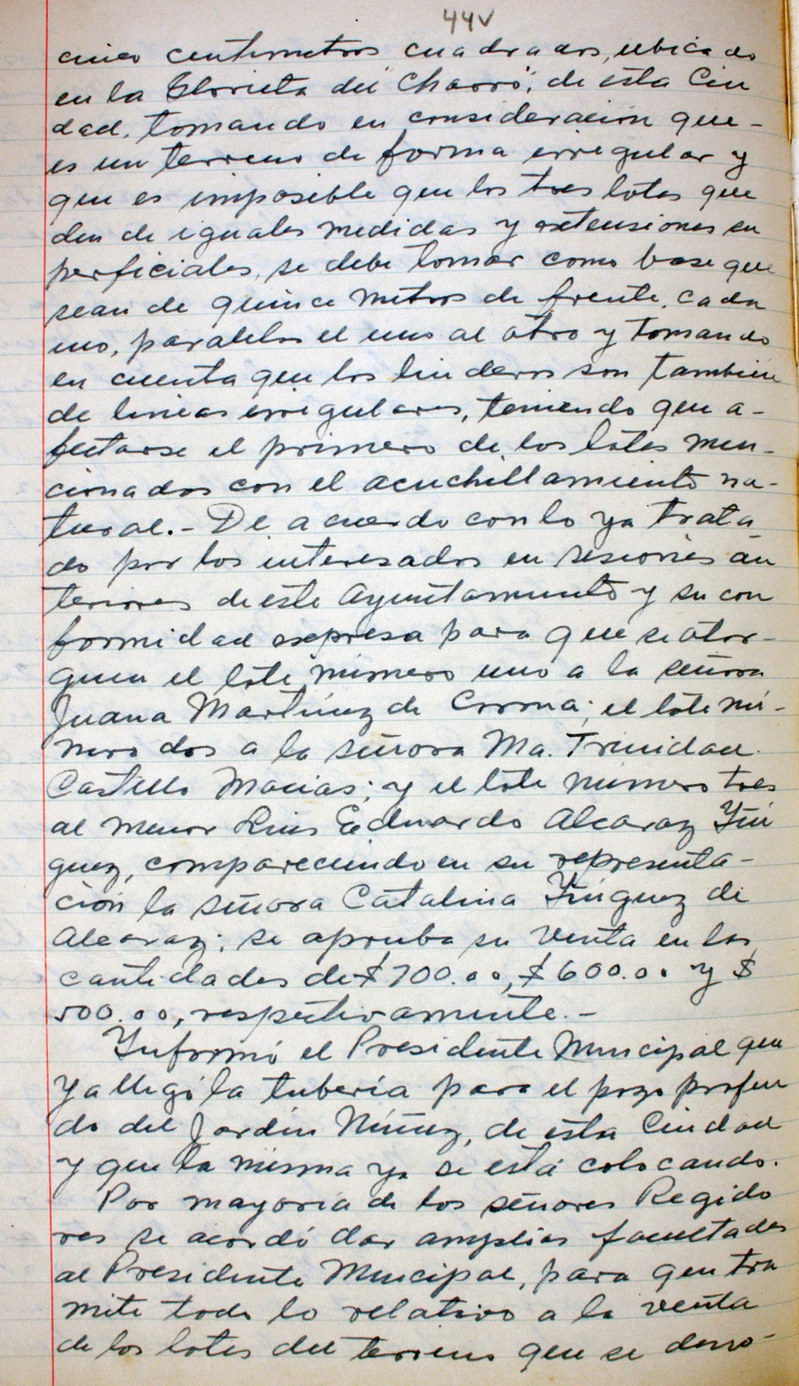 44v
cinco centimetros cuadrados, ubicado
en la Glorieta del Charro, de esta Ciu
dad, tomando en consideración que-
es un terreno de forma irregular y
que es imposible que los tres lotes que
den de iguales medidas y extensiones su
perficiales, se debe tomar como base que
sean de quince metros de frente, cada
uno, paralelos el uno al otro y tomando
en cuenta que los linderos son también
de lineas irregulares, teniendo que a-
fectarse el primero de los lotes men-
cionados con el acuchillamiento na-
tural.- De acuerdo con lo ya trata
do por los interesados en sesiones an
teriores de este Ayuntamiento y su con
formidad expresa para que se otor-
guen el lote número uno a la señora
Juana Martínez de Corona; el lote nú-
mero dos a la señora Ma. Trinidad
Castillo Macías; y el lote número tres
al menor Luis Eduardo Alcaraz Yñi
guez, compareciendo en su representa-
ción la señora Catalina Yñiguez de
Alcaraz; se aprueba su venta en las
cantidades de $700.00, $600.00 y $
500.00, respectivamente.-
Informó el Presidente Municipal que
ya llegó la tubería para el pozo profun
do del Jardín Núñez, de esta Ciudad
y que la misma ya se está colocando.
Por mayoría de los señores Regido
res se acordó dar amplias facultades
al Presidente Municipal, para que tra
mite todo lo relativo a la venta
de los lotes del terreno que se deno-